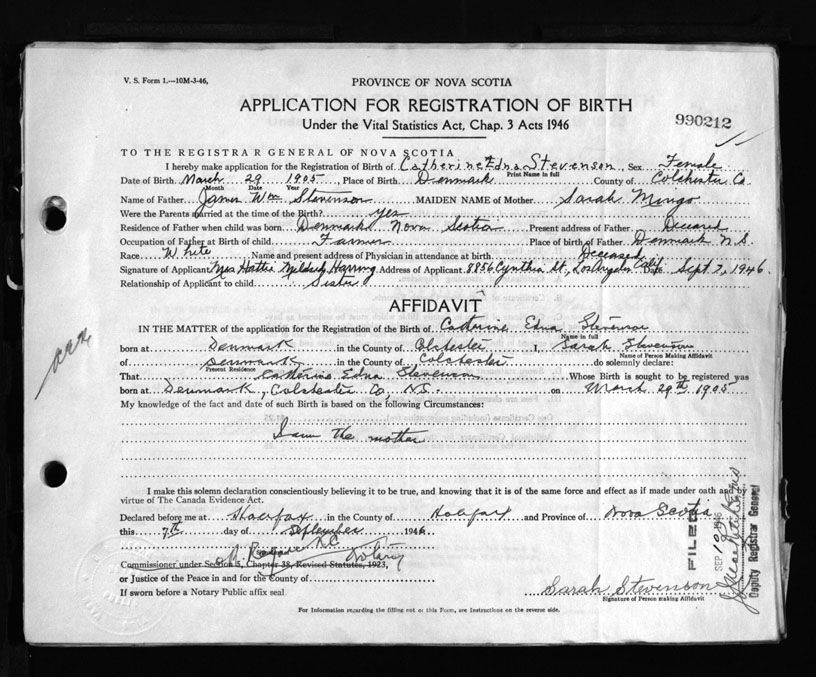 V. S. Form 1.—10M-3-46,
PROVINCE OF NOVA SCOTIA
APPLICATION FOR REGISTRATION OF BIRTH
Under the Vital Statistics Act, Chap. 3 Acts 1946
990212
TO THE REGISTRAR GENERAL OF NOVA SCOTIA
I hereby make application for the Registration of Birth of Catherine Edna Stevenson, Sex Female
Print Name in full
Date of Birth March 29 1905, Place of Birth Denmark County of Colchester Co
Month Date Year
Name of Father James Wm Stevenson MAIDEN NAME of Mother Sarah Mingo
Were the Parents married at the time of the Birth? yes
Residence of Father when child was born Denmark Nova Scotia Present address of Father Deceased
Occupation of Father at Birth of child Farmer Place of birth of Father Denmark N.S.
Race White Name and present address of Physician in attendance at birth Deceased
Signature of Applicant Mrs Hattie Mildred Harring Address of Applicant 8856 Cynthia St, Los Angeles Calif Date Sept 7, 1946.
Relationship of Applicant to child Sister
AFFIDAVIT
IN THE MATTER of the application for the Registration of the Birth of Catherine Edna Stevenson
Name in full
born at Denmark in the County of Colchester I, Sarah Stevenson
Name of Person Making Affidavit
of Denmark in the County of Colchester do solemnly declare:
Present Residence
That Catherine Edna Stevenson Whose Birth is sought to be registered was
born at Denmark, Colchester Co, N.S. on March 29th 1905
My knowledge of the fact and date of such Birth is based on the following Circumstances:
I am the mother
I make this solemn declaration conscientiously believing it to be true, and knowing that it is of the same force and effect as if made under oath and by
virtue of The Canada Evidence Act.
Declared before me at Halifax in the County of Halifax and Province of Nova Scotia
this 7th day of September 1946
K.C. Notary
Commissioner under Section 5, Chapter 38, Revised Statutes, 1923,
or Justice of the Peace in and for the County of
If sworn before a Notary Public affix seal
Sarah Stevenson
Signature of Person making Affidavit
For Information regarding the filling out of this Form, see Instructions on the reverse side.
FILED
SEP 10 1946
Deputy Registrar General